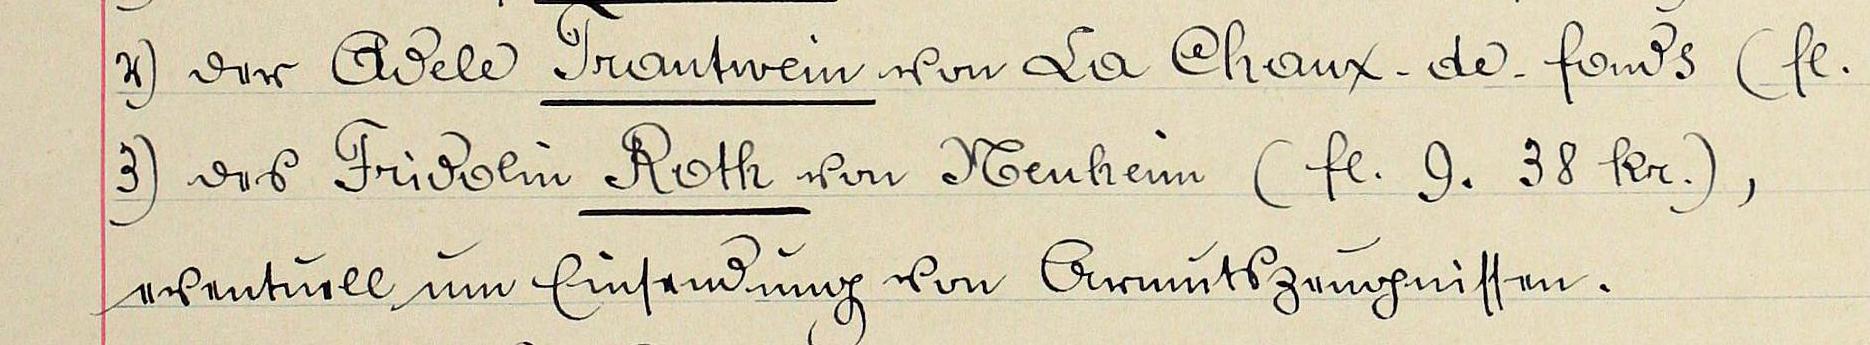 2) der Adele Trautwein von La Chaux-de-fonds (fl.
3) des Fridolin Roth von Neuheim (fl. 9. 38 kr.),
eventuell um Einsendung von Armutszeugnissen.